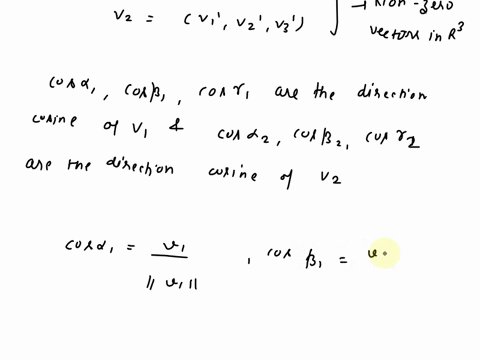 v2 = (v1', v2', v3') } → Non-zero
vectors in R³
cosα1, cosβ1, cosγ1 are the direction
cosine of V1 & cosα2, cosβ2, cosγ2
are the direction cosine of V2
cosα1 = v1 / ||v1|| , cos β1 = v